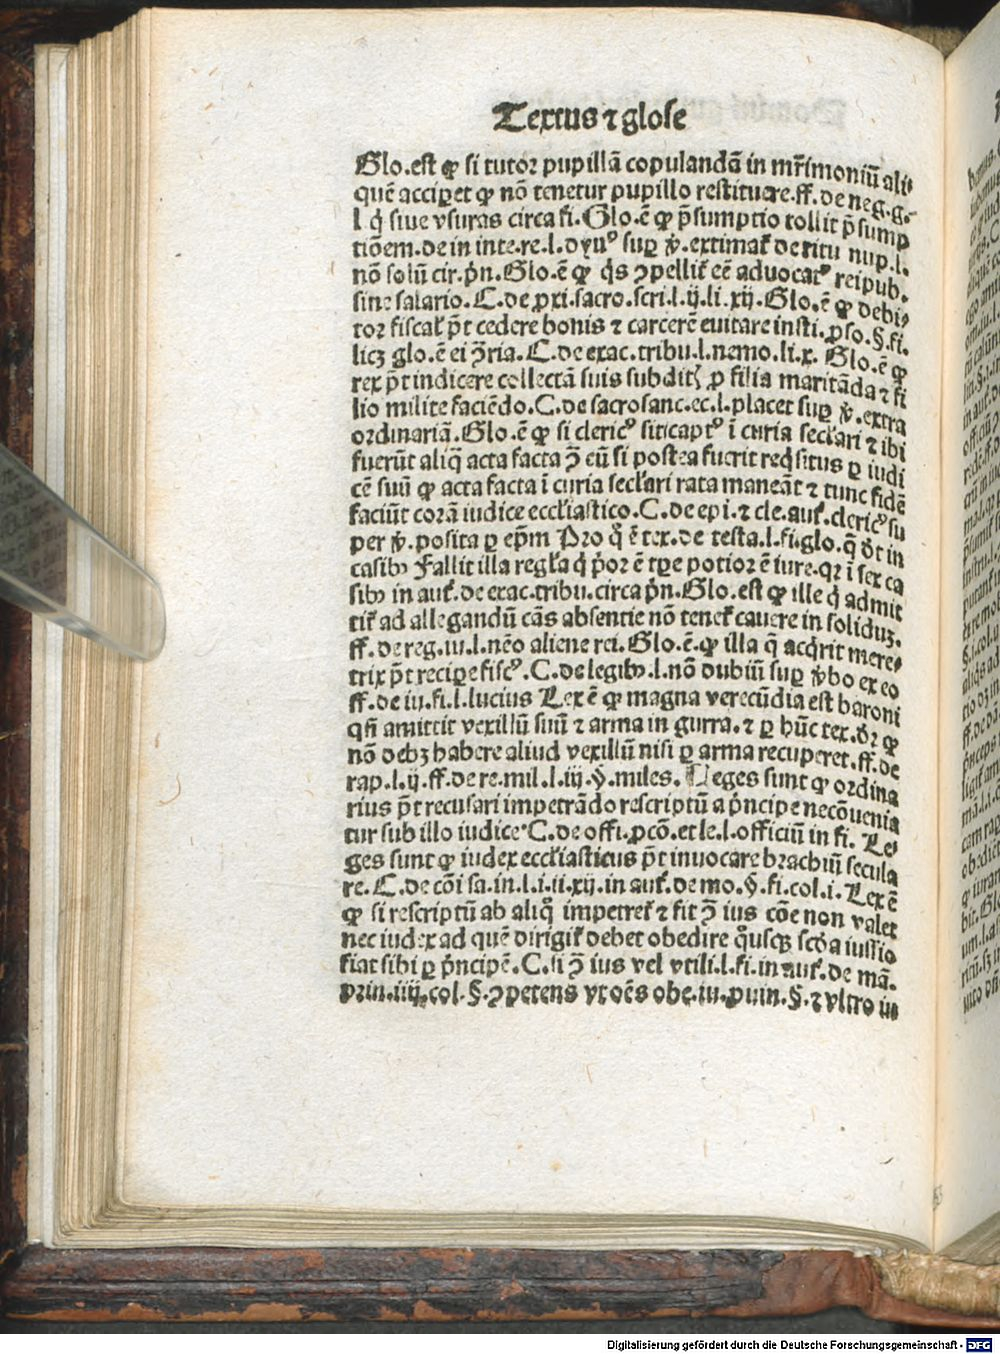 Textus ⁊ glose
Glo.est ꝙ si tutor pupillā copulandā in mr̄imoniū ali⸗
quē accip̱et ꝙ nō tenetur pupillo restituere.ff.de neg.g.
l q̇ siue vsuras circa fi. Glo.ē ꝙ p̄sumptio tollit p̄sump
tiōem.de in inte.re.l. sup̱ v̇.extimat᷑ de ritu nup.l.
nō solū cir.pn̄. Glo.ē ꝙ q̇s ꝯpellit᷑ eē aduocatꝰ reipub.
sine salario. C.de ꝓxi.sacro.scri.l.ij.li.xij. Glo.ē ꝙ debi⸗
tor fiscal᷑ p̄t cedere bonis ⁊ carcerē euitare insti.ꝓso.§.fi.
licꝫ glo.ē ei ꝯ̄ria. C.de exac.tribu.l.nemo.li.x. Glo.ē ꝙ
rex p̄t indicere collectā suis subditꝭ ꝓ filia maritāda ⁊ fi
lio milite faciēdo. C.de sacrosanc.ec.l.placet sup̱ v̇.extra
ordinariā. Glo.ē ꝙ si clericꝰ sit captꝰ ī curia secl᷑ari ⁊ ibi
fuerūt aliq̄ acta facta ꝯ̄ eū si postea fuerit req̇situs ꝑ iudi
cē suū ꝙ acta facta ī curia secl᷑ari rata maneāt ⁊ tunc fidē
faciūt corā iudice eccl᷑iastico. C.de epi.⁊ cle.aut᷑.clericꝰ su
per v̇.posita ꝑ ep̄m Pro qͦ ē tex.de testa.l.fi.glo.q̄ dr̄t in
casibꝫ Fallit illa regl᷑a q̇ ṗor ē tꝑe potior ē iure.qꝛ ī sex ca
sibꝫ in aut᷑.de exac.tribu.circa pn̄. Glo.est ꝙ ille q̇ admit
tit᷑ ad allegandū cās absentie nō tenet᷑ cauere in soliduꝫ.
ff.de reg.iu.l.nēo aliene rei. Glo.ē.ꝙ illa q̄ acq̇rit mere⸗
trix p̄t recip̱e fiscꝰ. C.de legibꝫ.l.nō dubiū sup̱ v̇bo ex eo
ff.de iu.fi.l.lucius Lex ē ꝙ magna verecūdia est baroni
qn̄ amittit vexillū suū ⁊ arma in gurra.⁊ ꝑ hūc tex.dr̄ ꝙ
nō debꝫ habere aliud vexillū nisi ꝑ arma recuperet.ff.de
rap.l.ij.ff.de re.mil.l.iij.§.miles. Leges sunt ꝙ ordina
rius p̄t recusari impetrādo rescriptū a pn̄cipe ne cōuenia
tur sub illo iudice C.de offi.ꝓcō.et le.l.officiū in fi. Le⸗
ges sunt ꝙ iudex eccl᷑iasticus p̄t inuocare brachiū secula
re. C.de cōi sa.in.l.i.ii.xij.in aut᷑.de mo.§.fi.col.i. Lex ē
ꝙ si rescriptū ab aliqͦ impetret᷑ ⁊ fit ꝯ̄ ius cōe non valet
nec iudex ad quē dirigit᷑ debet obedire qͦusqꝫ scd̄a iussio
fiat sibi ꝑ pn̄cipē. C.si ꝯ̄ ius vel vtili.l.fi.in aut᷑.de mā.
prin.iiij.col.§.ꝯpetens vt oēs obe.iu.ꝓuin.§.⁊ vltro in
Digitalisierung gefördert durch die Deutsche Forschungsgemeinschaft - DFG